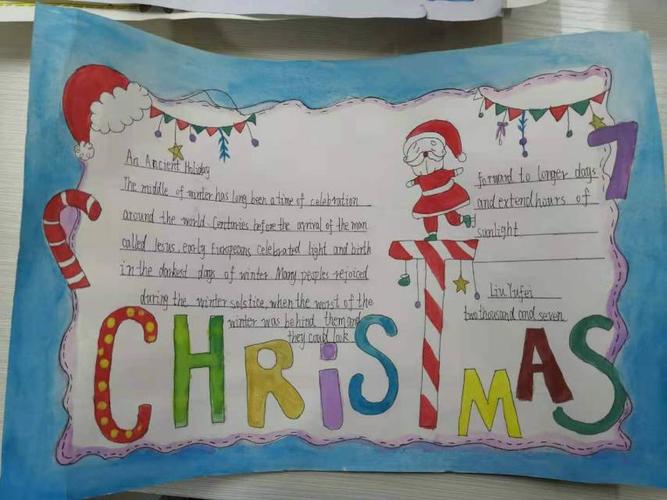 An Ancient Holiday
The middle of winter has long been a time of celebration
around the world. Centuries before the arrival of the man
called Jesus, early Europeans celebrated light and birth
in the darkest days of winter. Many peoples rejoiced
during the winter solstice, when the worst of the
winter was behind them and
they could look
forward to longer days
and extend hours of
sunlight
Liu Yufei
two thousand and seven
7
CHRiSTMAS